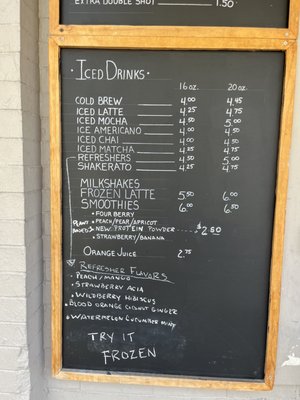 EXTRA DOUBLE SHOT 1.50
ICED DRINKS.
16 oz. 20 oz.
COLD BREW 4.00 4.45
ICED LATTE 4.25 4.75
ICED MOCHA 4.50 5.00
ICE AMERICANO 4.00 4.50
ICED CHAI 4.00 4.50
ICED MATCHA 4.25 4.75
REFRESHERS 4.50 5.00
SHAKERATO 4.25 4.75
MILKSHAKES
FROZEN LATTE 5.50 6.00
SMOOTHIES 6.00 6.50
• FOUR BERRY
• PEACH/PEAR/APRICOT
PLANT BASED • NEW PROTEIN POWDER $2.50
• STRAWBERRY/BANANA
ORANGE JUICE 2.75
REFRESHER FLAVORS
• PEACH/MANGO
• STRAWBERRY ACIA
• WILDBERRY HIBISCUS
• BLOOD ORANGE COCONUT GINGER
• WATERMELON CUCUMBER MINT
TRY IT
FROZEN